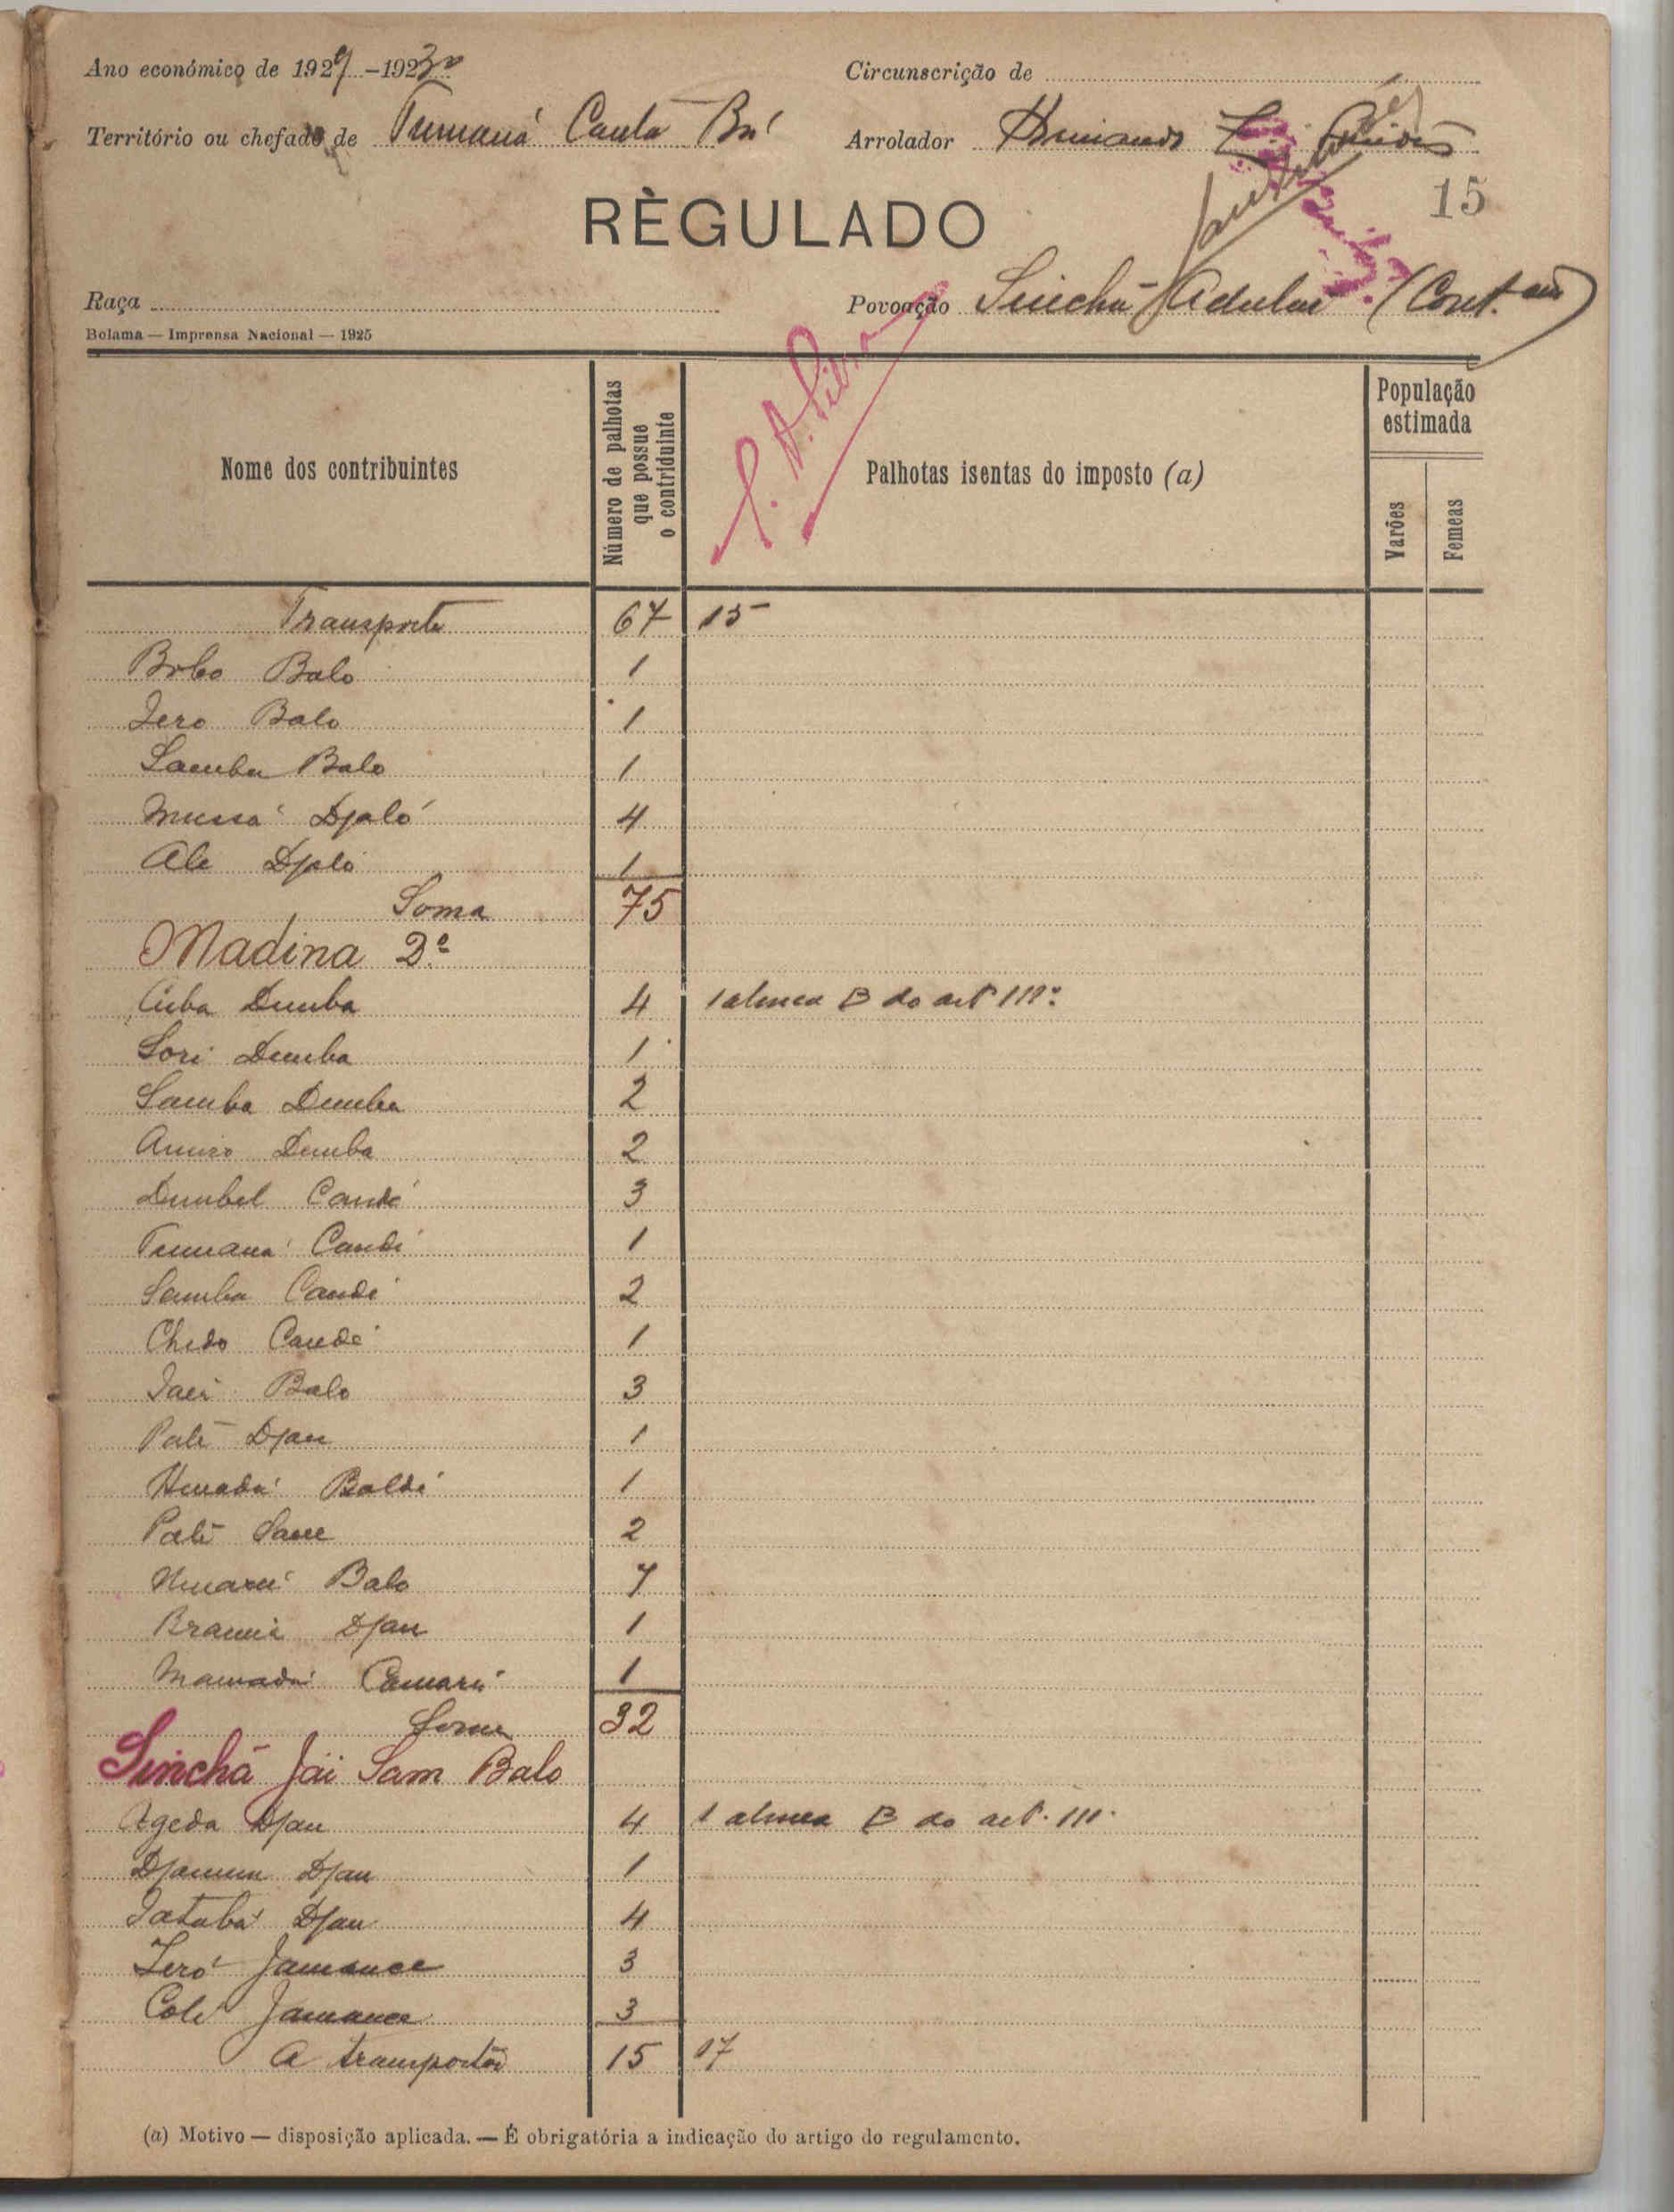 Ano económico de 1929-1930
Circunscrição de
Território ou chefado de Tumaná Canta Bá
Arrolador
15
RÈGULADO
Raça
Povoação Sinchã Adulai (Cont. am)
Bolama — Imprensa Nacional — 1925
Nome dos contribuintes
Número de palhotas que possue o contriduinte
Palhotas isentas do imposto (a)
População estimada
Varões
Femeas
Transporte 67 15
Bobo Balo 1
Jero Balo 1
Samba Balo 1
Mussá Djaló 4
Ale Djaló 1
Soma 75
Madina 2º
Cuba Demba 4 1 alinea B do artº 111º
Sori Demba 1
Samba Demba 2
Amiro Demba 2
Dembel Candé 3
Tumaná Candé 1
Samba Candé 2
Chedo Candé 1
Jaei Balo 3
Paté Djau 1
Amadú Baldé 1
Paté Sane 2
Umarú Balo 7
Braima Djau 1
Mamadú Camará 1
Soma 32
Sinchã Jai Sam Balo
Ageda Djau 4 1 alinea B do art. 111
Djamun Djau 1
Jatabá Djau 4
Jeró Jamanca 3
Colé Jamanca 3
A transportar 15 17
(a) Motivo — disposição aplicada. — É obrigatória a indicação do artigo do regulamento.